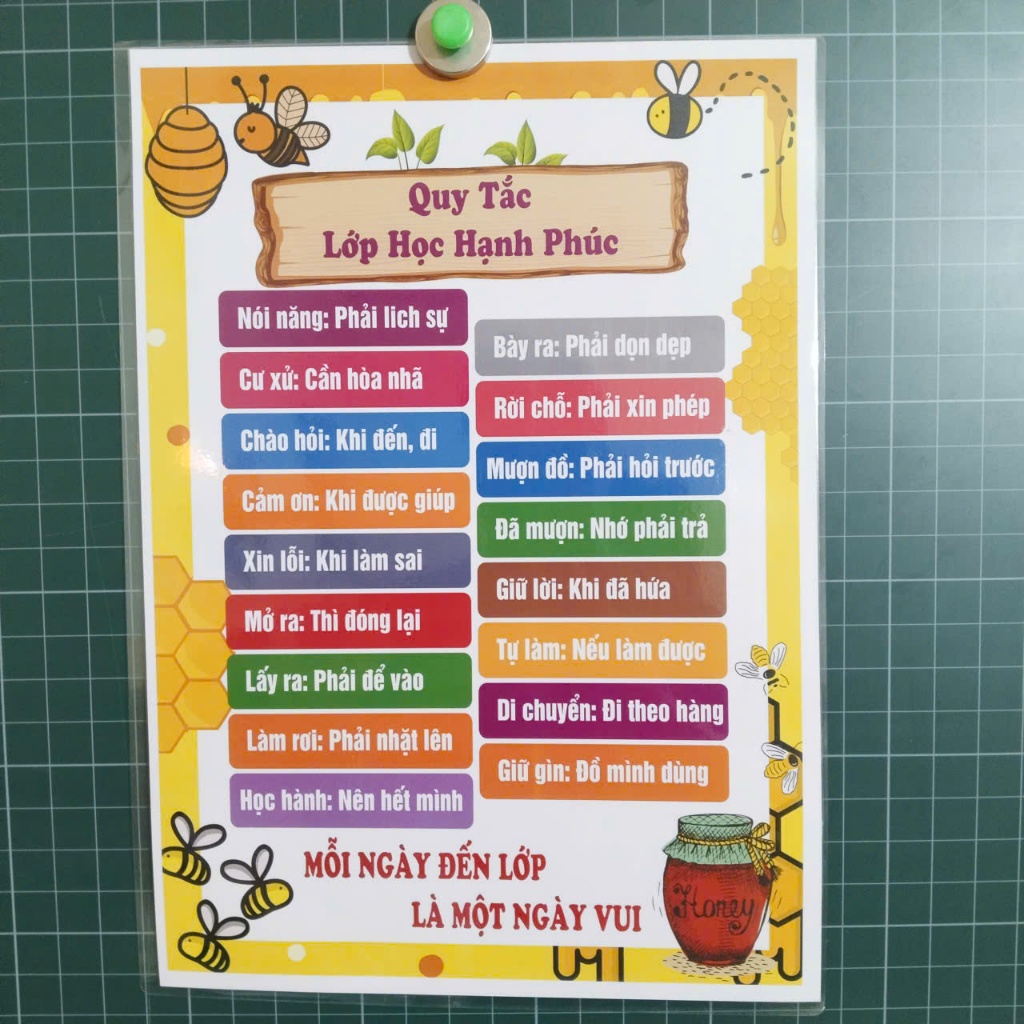 Quy Tắc
Lớp Học Hạnh Phúc
Nói năng: Phải lich sự
Cư xử: Cần hòa nhã
Chào hỏi: Khi đến, đi
Cảm ơn: Khi được giúp
Xin lỗi: Khi làm sai
Mở ra: Thì đóng lại
Lấy ra: Phải để vào
Làm rơi: Phải nhặt lên
Học hành: Nên hết mình
Bày ra: Phải dọn dẹp
Rời chỗ: Phải xin phép
Mượn đồ: Phải hỏi trước
Đã mượn: Nhớ phải trả
Giữ lời: Khi đã hứa
Tự làm: Nếu làm được
Di chuyển: Đi theo hàng
Giữ gìn: Đồ mình dùng
MỖI NGÀY ĐẾN LỚP
LÀ MỘT NGÀY VUI
Honey